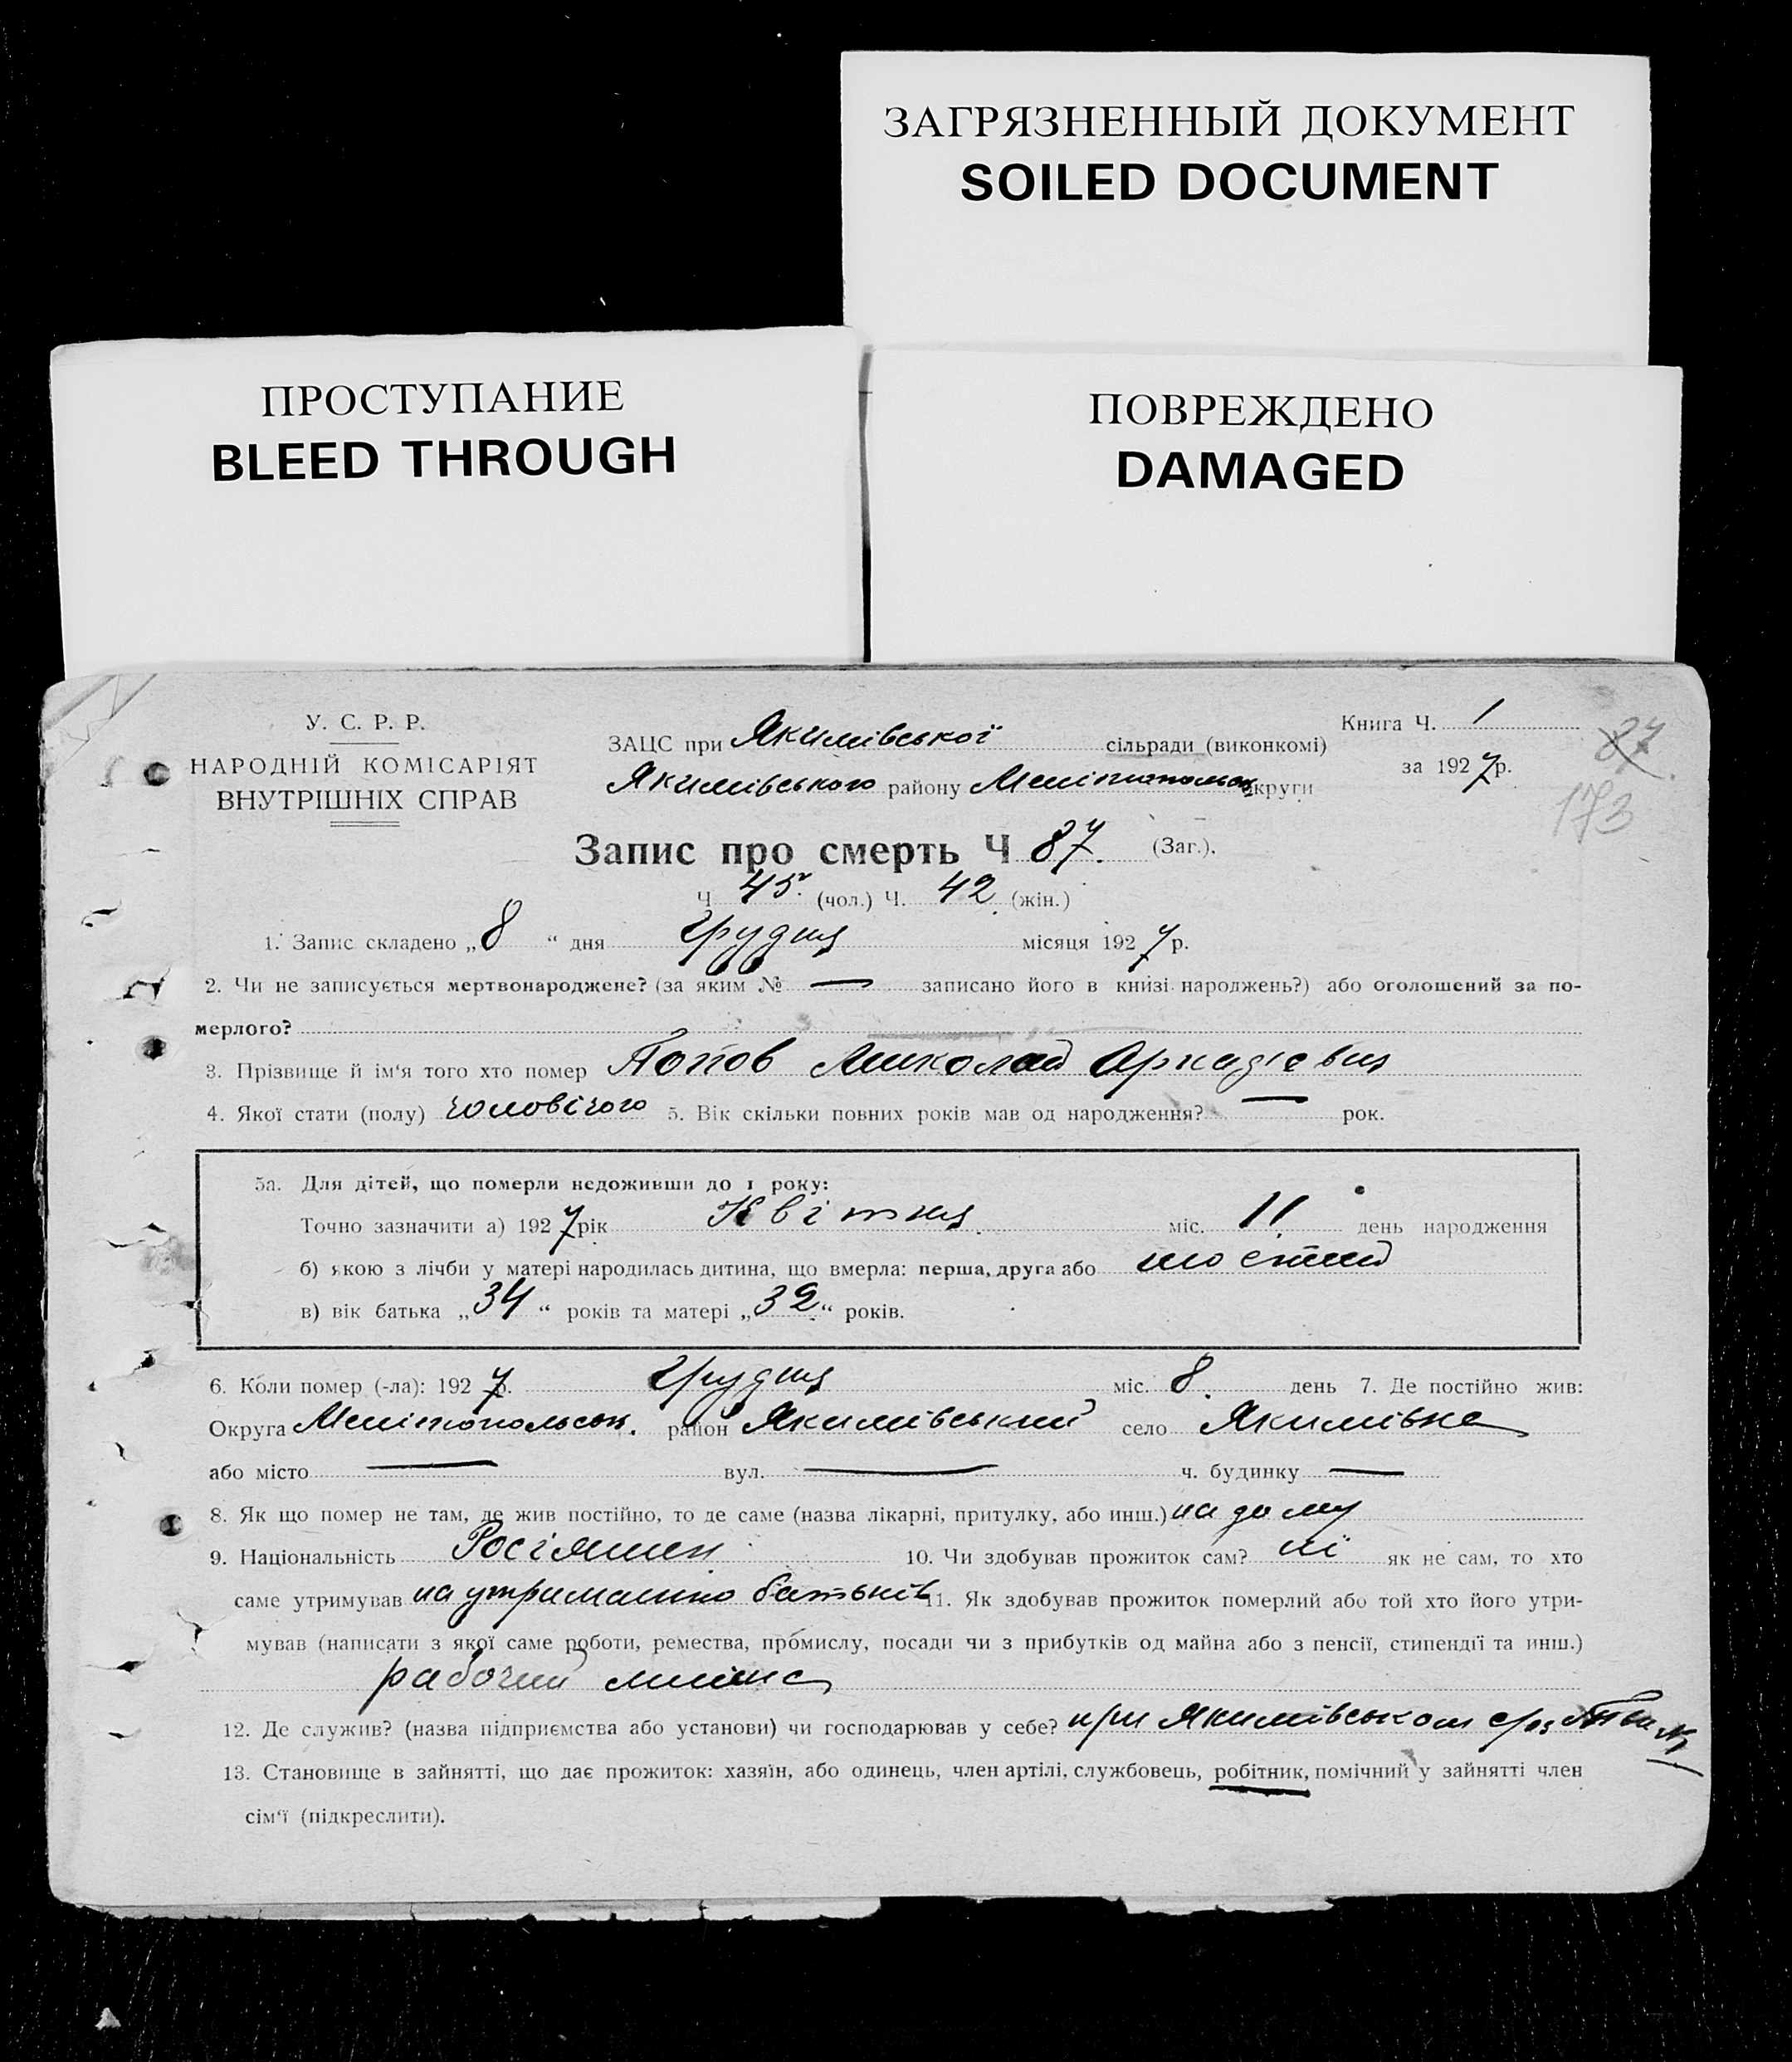 ЗАГРЯЗНЕННЫЙ ДОКУМЕНТ
SOILED DOCUMENT
ПРОСТУПАНИЕ
BLEED THROUGH
ПОВРЕЖДЕНО
DAMAGED
У. С. Р. Р.
НАРОДНІЙ КОМІСАРІЯТ
ВНУТРІШНІХ СПРАВ
ЗАЦС при Якимівської сільради (виконкомі)
Якимівського району Мелітопольськ округи
Книга Ч. 1
за 1927 р.
87
173
Запис про смерть Ч 87. (Заг.).
Ч 45 (чол.) Ч. 42 (жін.)
1. Запис складено „8“ дня грудня місяця 1927 р.
2. Чи не записується мертвонароджене? (за яким № — записано його в книзі народжень?) або оголошений за по-
мерлого?
3. Прізвище й ім'я того хто помер Попов Миколай Аркадієвич
4. Якої стати (полу) чоловічого 5. Вік скільки повних років мав од народження? — рок.
5а. Для дітей, що померли недоживши до 1 року:
Точно зазначити а) 1927 рік Квітня міс. 11 день народження
б) якою з лічби у матері народилась дитина, що вмерла: перша, друга або шостий
в) вік батька „34“ років та матері „32“ років.
6. Коли помер (-ла): 1927 р. Грудня міс. 8 день 7. Де постійно жив:
Округа Мелітопольськ. район Якимівський село Якимівка
або місто — вул. — ч. будинку —
8. Як що помер не там, де жив постійно, то де саме (назва лікарні, притулку, або инш.) на дому
9. Національність Росіянин 10. Чи здобував прожиток сам? ні як не сам, то хто
саме утримував на утриманню батьків 11. Як здобував прожиток померлий або той хто його утри-
мував (написати з якої саме роботи, ремества, промислу, посади чи з прибутків од майна або з пенсії, стипендії та инш.)
рабочий
12. Де служив? (назва підприємства або установи) чи господарював у себе? при Якимівском
13. Становище в зайнятті, що дає прожиток: хазяїн, або одинець, член артілі, службовець, робітник, помічний у зайнятті член
сім'ї (підкреслити).